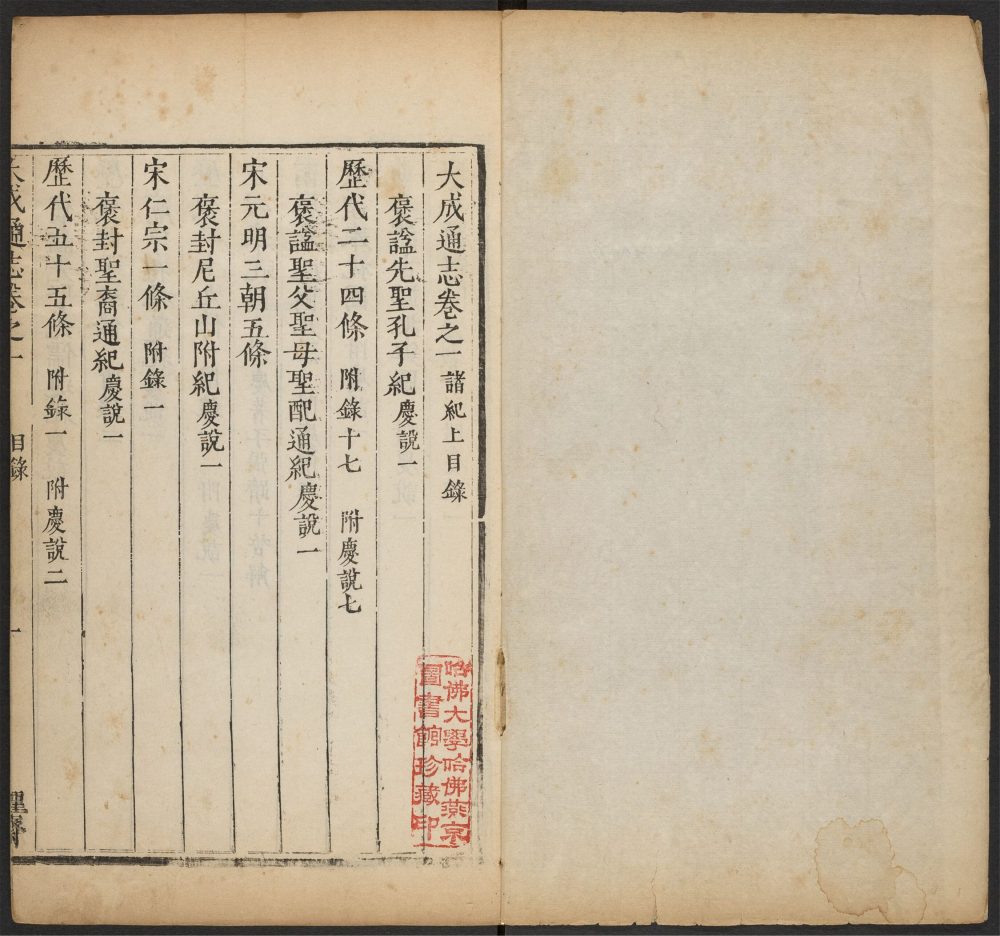 大成通志卷之一 諸紀上目錄
褒諡先聖孔子紀慶說一
歷代二十四條 附錄十七 附慶說七
褒諡聖父聖母聖配通紀慶說一
宋元明三朝五條
褒封尼丘山附紀慶說一
宋仁宗一條 附錄一
褒封聖裔通紀慶說一
歷代五十五條 附錄一 附慶說二
大成通志卷之一 目錄 一
哈佛大學哈佛燕京
圖書館珍藏印